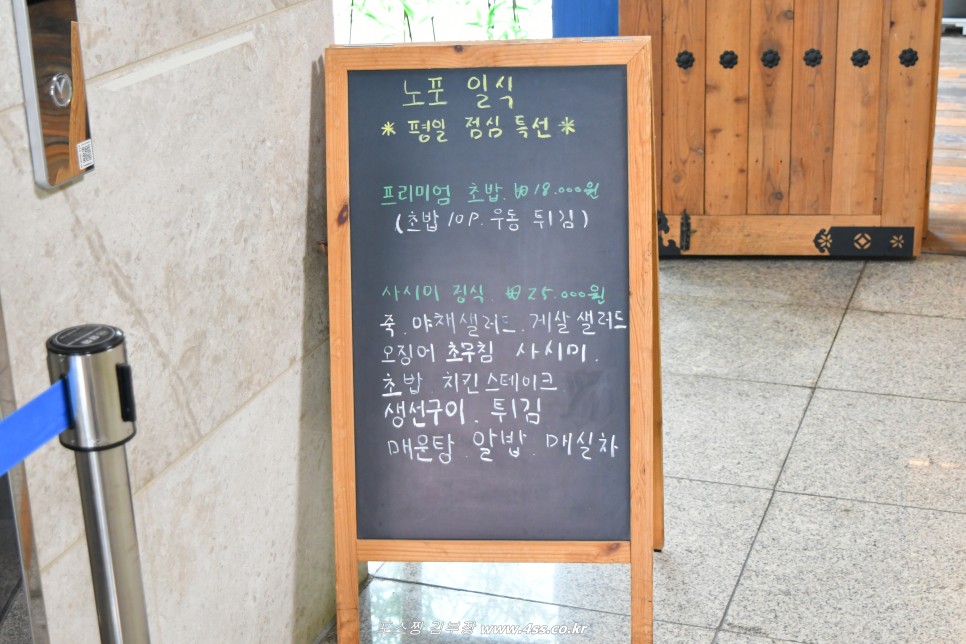 노포 일식
* 평일 점심 특선 *
프리미엄 초밥. ₩18.000원
(초밥 10P. 우동 튀김)
사시미 정식. ₩25.000원
죽. 야채샐러드. 게살샐러드
오징어 초무침 사시미.
초밥. 치킨스테이크
생선구이. 튀김
매운탕. 알밥. 매실차
포스짱 김부장 www.4ss.co.kr